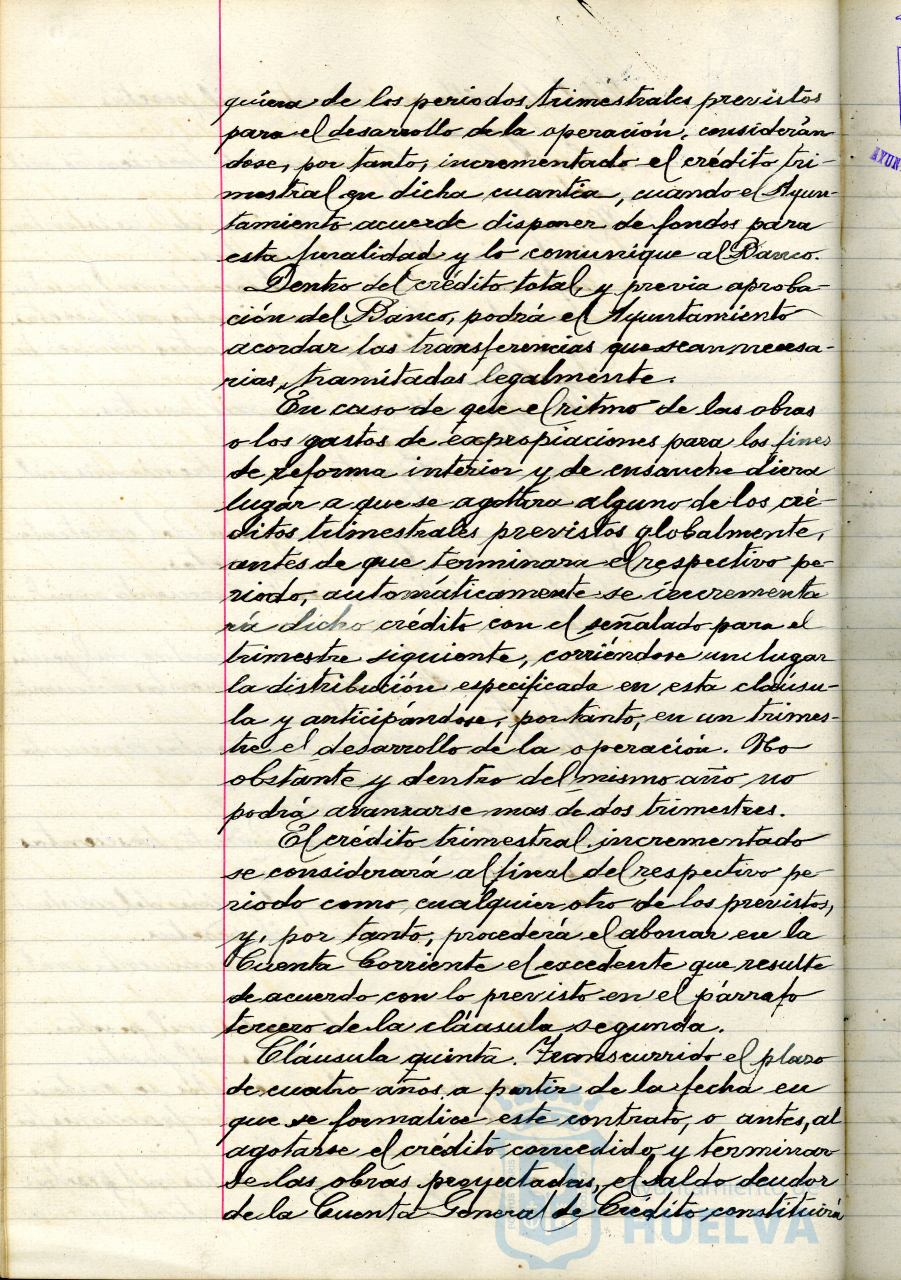 quiera de los periodos trimestrales previstos
para el desarrollo de la operación, considerán
dose, por tanto, incrementado el crédito tri-
mestral en dicha cuantía, cuando el Ayun-
tamiento acuerde disponer de fondos para
esta finalidad y lo comunique al Banco.
Dentro del crédito total, y previa aproba-
ción del Banco, podrá el Ayuntamiento
acordar las transferencias que sean necesa-
rias, tramitadas legalmente.
En caso de que el ritmo de las obras
o los gastos de expropiaciones para los fines
de reforma interior y de ensanche diera
lugar a que se agotara alguno de los cré-
ditos trimestrales previstos globalmente,
antes de que terminara el respectivo pe-
riodo, automáticamente se incrementa
rá dicho crédito con el señalado para el
trimestre siguiente, corriéndose un lugar
la distribución especificada en esta cláusu-
la y anticipándose, por tanto, en un trimes-
tre el desarrollo de la operación. No
obstante y dentro del mismo año no
podrá avanzarse mas de dos trimestres.
El crédito trimestral incrementado
se considerará al final del respectivo pe-
riodo como cualquier otro de los previstos,
y, por tanto, procederá el abonar en la
Cuenta Corriente el excedente que resulte
de acuerdo con lo previsto en el párrafo
tercero de la cláusula segunda.
Cláusula quinta. Transcurrido el plazo
de cuatro años a partir de la fecha en
que se formalice este contrato, o antes, al
agotarse el crédito concedido y terminar
se las obras proyectadas, el saldo deudor
de la Cuenta General de Crédito constituirá
Ayuntamiento de
HUELVA